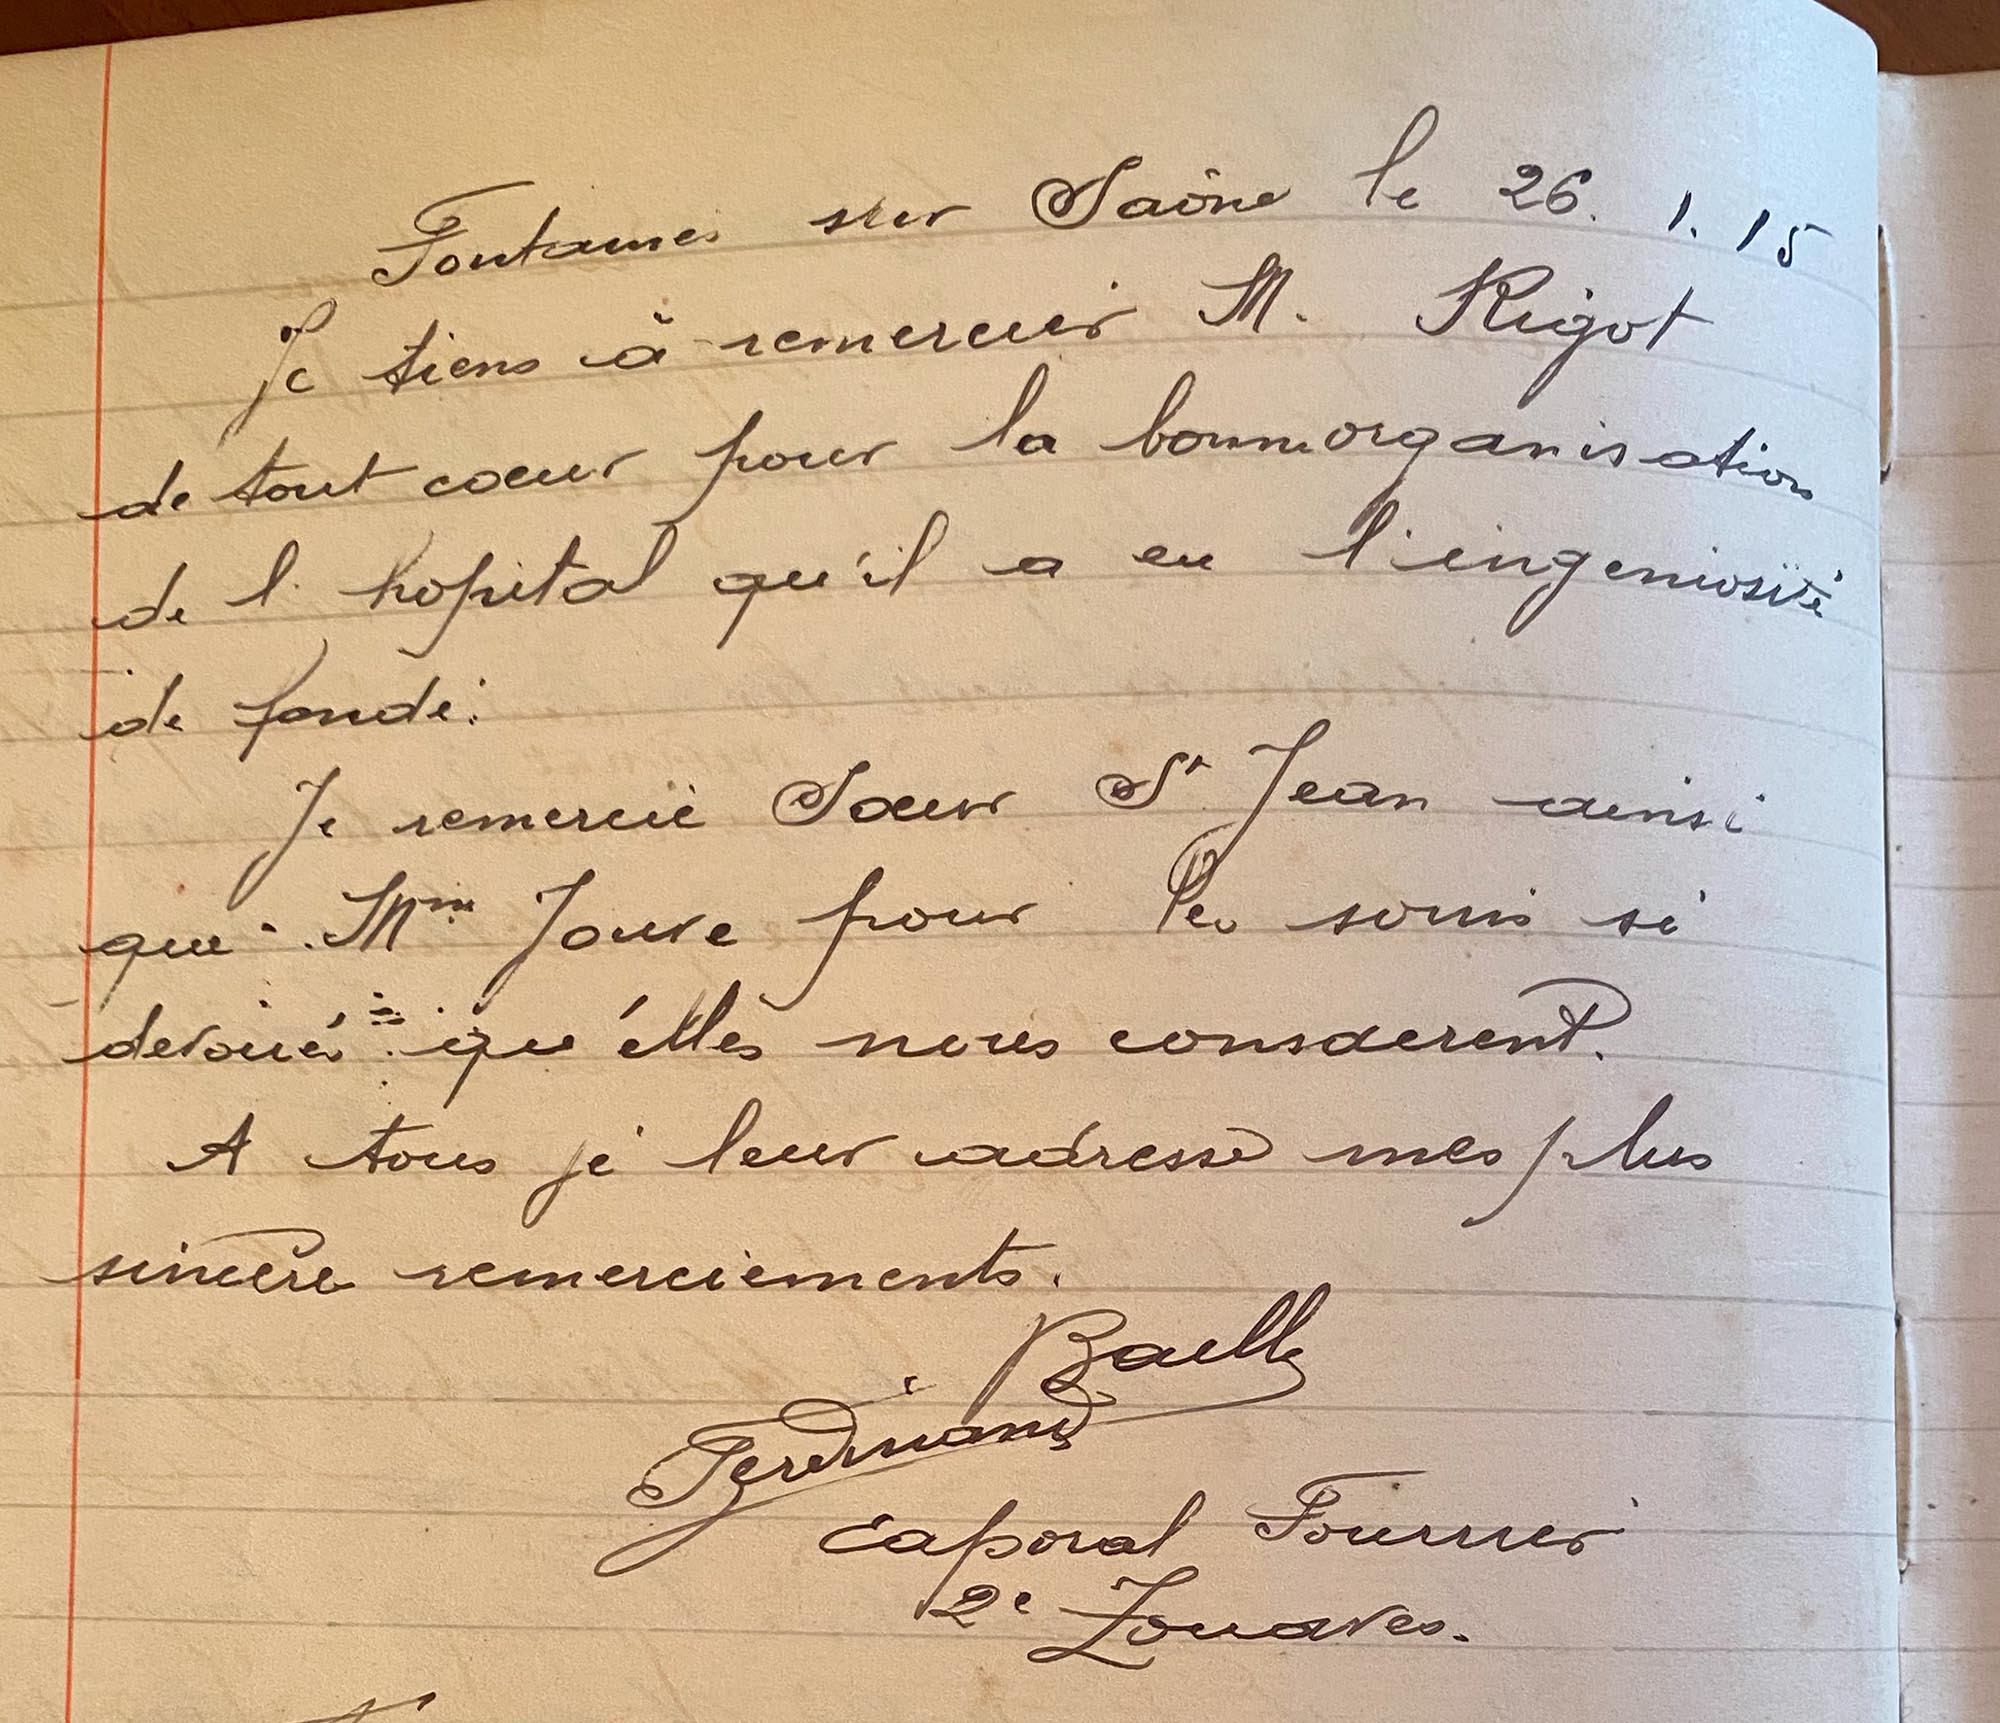 Fontaines sur Saône le 26. 1. 15
Je tiens à remercier M. Rigot
de tout coeur pour la bonne organisation
de l'hopital qu'il a eu l'ingeniosité
de fondé.
Je remercie Soeur St Jean ainsi
que Mme Jouve pour les soins si
devoués qu'elles nous consacrent.
A tous je leur adresse mes plus
sincère remerciements.
Ferdinand
Caporal Fourrier
2e Zouaves.